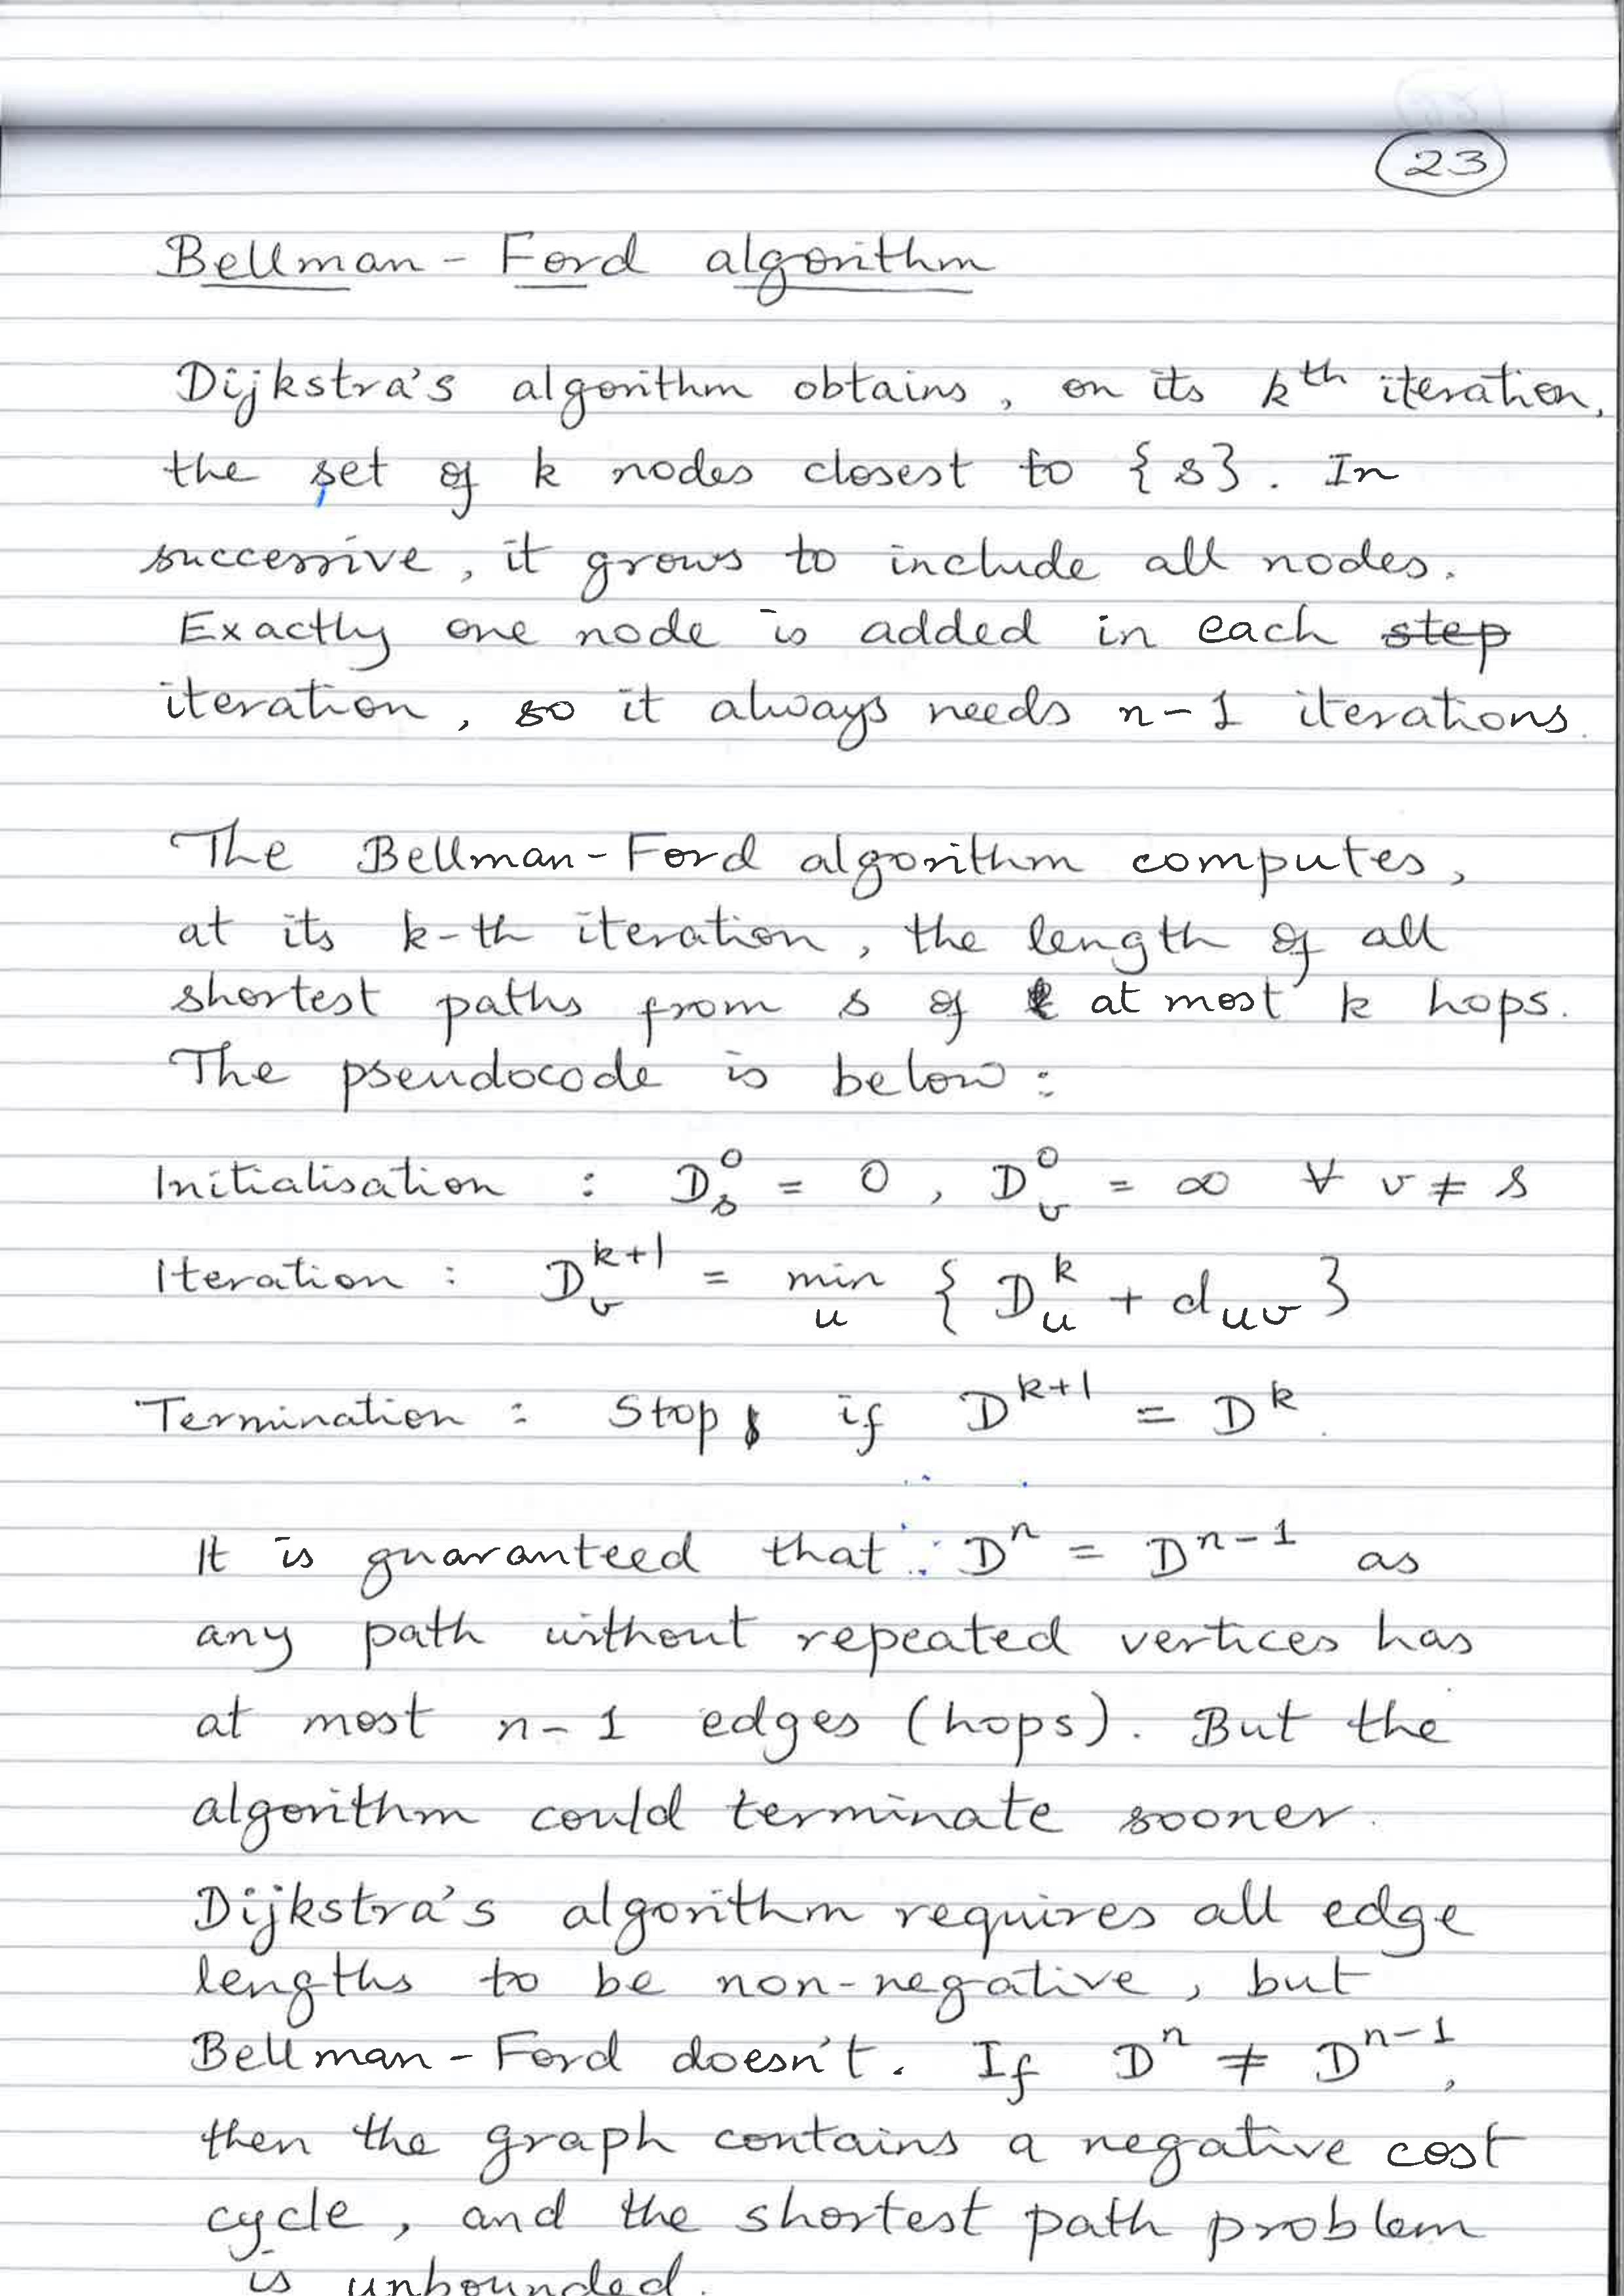 23
Bellman - Ford algorithm
Dijkstra's algorithm obtains, on its kth iteration,
the set of k nodes closest to {s}. In
successive, it grows to include all nodes.
Exactly one node is added in each step
iteration, so it always needs n-1 iterations.
The Bellman-Ford algorithm computes,
at its k-th iteration, the length of all
shortest paths from s of at most k hops.
The pseudocode is below:
Initialisation : D_s^0 = 0, D_v^0 = ∞ ∀ v ≠ s
Iteration : D_v^{k+1} = min_u { D_u^k + d_{uv} }
Termination : Stop if D^{k+1} = D^k.
It is guaranteed that : D^n = D^{n-1} as
any path without repeated vertices has
at most n-1 edges (hops). But the
algorithm could terminate sooner.
Dijkstra's algorithm requires all edge
lengths to be non-negative, but
Bellman-Ford doesn't. If D^n ≠ D^{n-1},
then the graph contains a negative cost
cycle, and the shortest path problem
is unbounded.